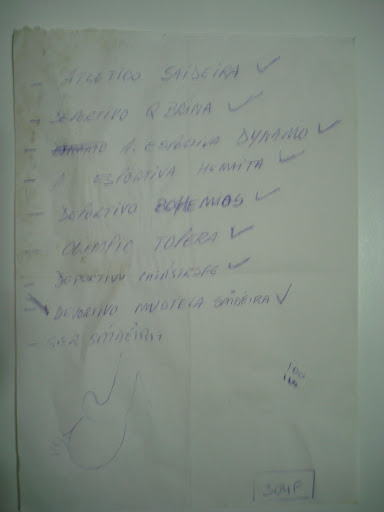 - ATLETICO SAIDEIRA ✓
- DEPORTIVO Q BRINA ✓
- A. ESPORTIVA DYNAMO ✓
- A ESPORTIVA HEMATTA ✓
- DEPORTIVO BOHEMIOS ✓
- OLIMPIC TOPERA ✓
- DEPORTIVO ✓
- DEPORTIVO MUSTELA SAIDEIRA ✓
- SER